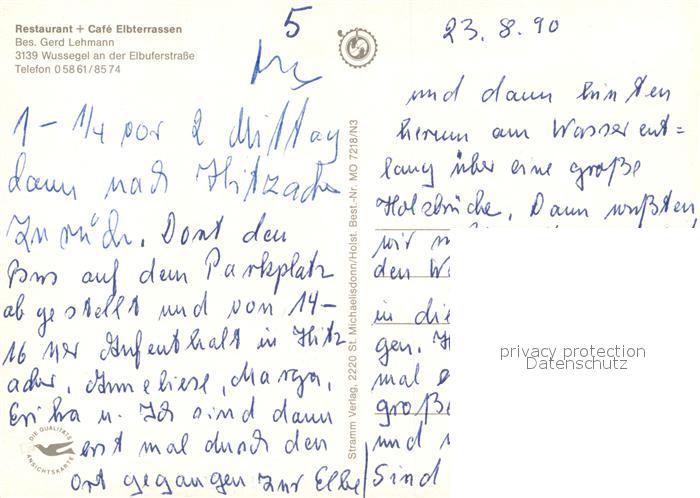 Restaurant + Café Elbterrassen
Bes. Gerd Lehmann
3139 Wussegel an der Elbuferstraße
Telefon 0 58 61 / 85 74
5
23. 8. 90
1 - 1/4 vor 2 Mittag
dann nach Hitzacker
zurück. Dort den
Bus auf dem Parkplatz
abgestellt und von 14-
16 Uhr Aufenthalt in Hitz
acker. Anneliese, Marga,
Erika u. Ich sind dann
erst mal durch den
Ort gegangen zur Elbe
und dann hinten
herum am Wasser ent=
lang über eine große
Holzbrücke. Dann wußten
wir
den
in die
gen.
mal
große
und
Sind
Stramm Verlag, 2220 St. Michaelisdonn/Holst. Best.-Nr. MO 7218/N3
DIE QUALITÄTS
ANSICHTSKARTE
privacy protection
Datenschutz